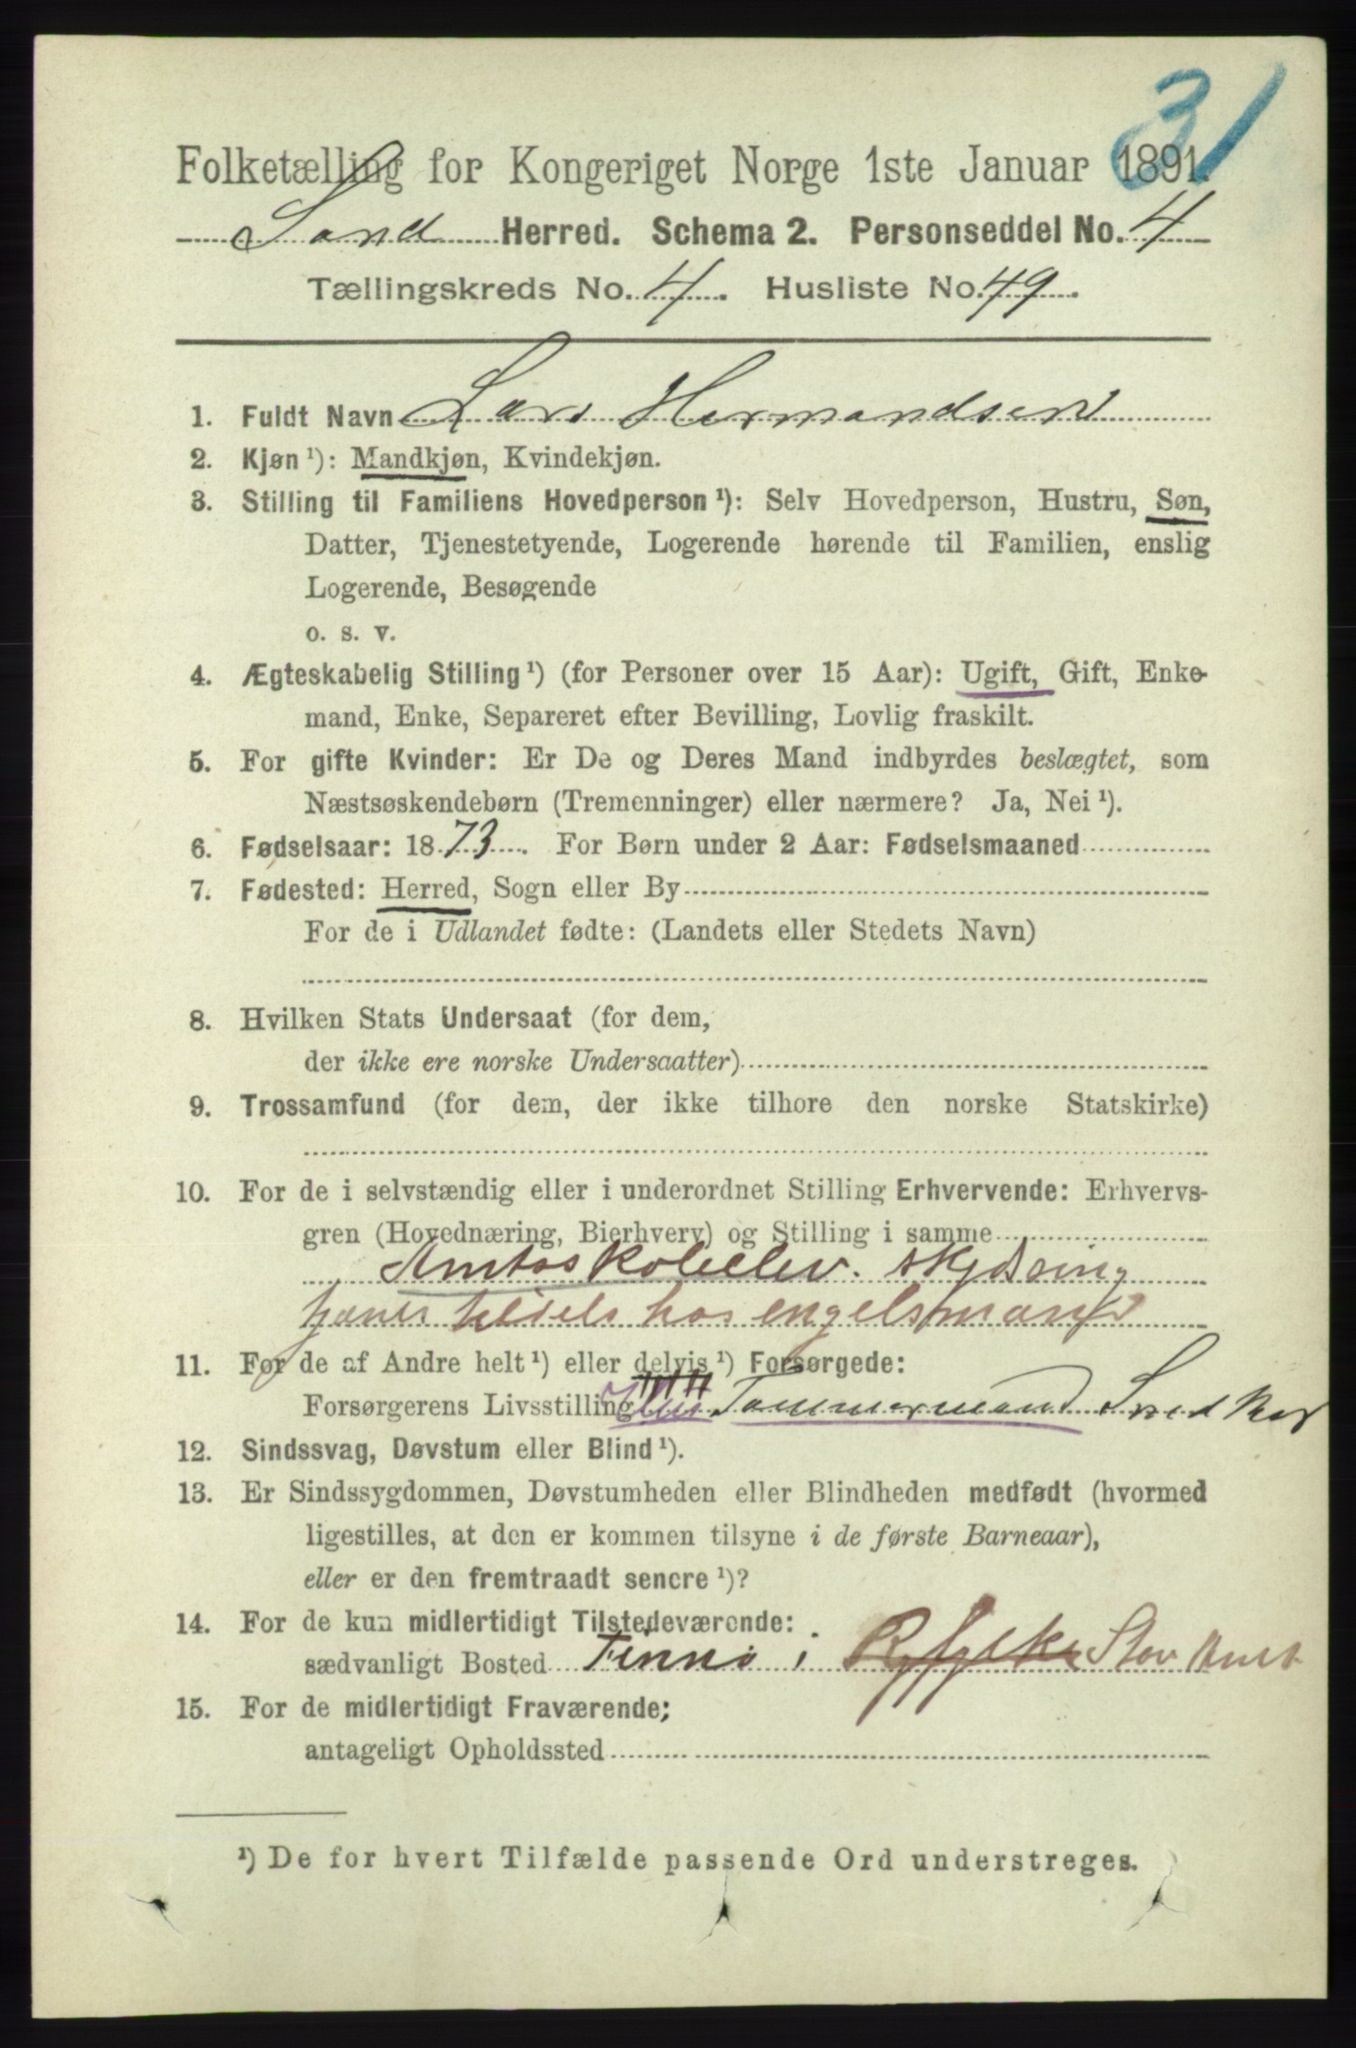 31
Folketælling for Kongeriget Norge 1ste Januar 1891.
Sand Herred. Schema 2. Personseddel No. 4
Tællingskreds No. 4. Husliste No. 49.
1. Fuldt Navn Lars Hermandsen
2. Kjøn ¹): Mandkjøn, Kvindekjøn.
3. Stilling til Familiens Hovedperson ¹): Selv Hovedperson, Hustru, Søn,
Datter, Tjenestetyende, Logerende hørende til Familien, enslig
Logerende, Besøgende
o. s. v.
4. Ægteskabelig Stilling ¹) (for Personer over 15 Aar): Ugift, Gift, Enke-
mand, Enke, Separeret efter Bevilling, Lovlig fraskilt.
5. For gifte Kvinder: Er De og Deres Mand indbyrdes beslægtet, som
Næstsøskendebørn (Tremenninger) eller nærmere? Ja, Nei ¹).
6. Fødselsaar: 1873. For Børn under 2 Aar: Fødselsmaaned
7. Fødested: Herred, Sogn eller By
For de i Udlandet fødte: (Landets eller Stedets Navn)
8. Hvilken Stats Undersaat (for dem,
der ikke ere norske Undersaatter)
9. Trossamfund (for dem, der ikke tilhore den norske Statskirke)
10. For de i selvstændig eller i underordnet Stilling Erhvervende: Erhvervs-
gren (Hovednæring, Bierhverv) og Stilling i samme
Amtsskoleelev. skydsning
tjener tildels hos engelsmænd
11. For de af Andre helt ¹) eller delvis ¹) Forsørgede:
Forsørgerens Livsstilling Tømmermand Snedker
12. Sindssvag, Døvstum eller Blind ¹).
13. Er Sindssygdommen, Døvstumheden eller Blindheden medfødt (hvormed
ligestilles, at den er kommen tilsyne i de første Barneaar),
eller er den fremtraadt senere ¹)?
14. For de kun midlertidigt Tilstedeværende:
sædvanligt Bosted Finnø i Ryfylke Stav Amt
15. For de midlertidigt Fraværende;
antageligt Opholdssted
¹) De for hvert Tilfælde passende Ord understreges.